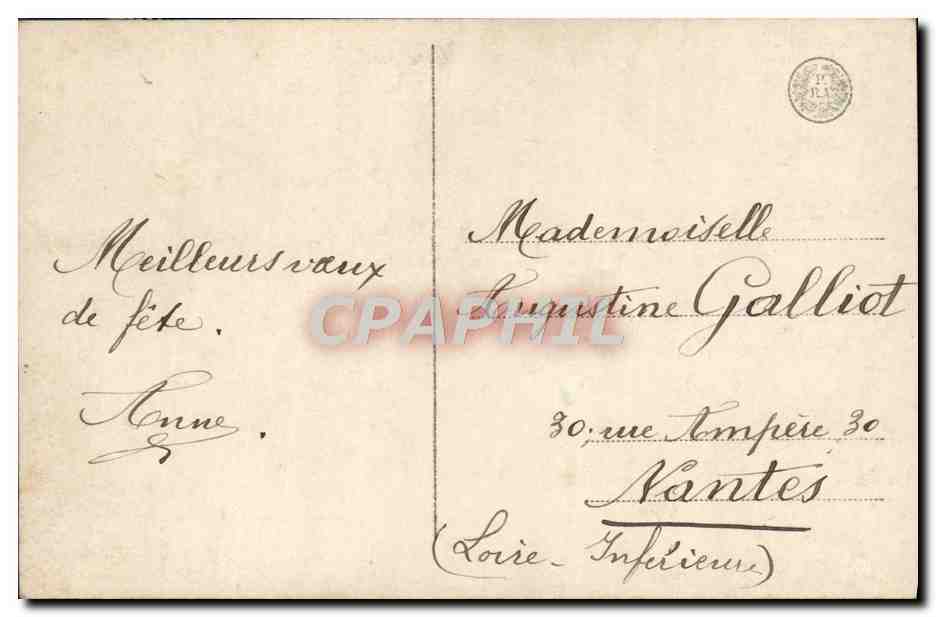 Meilleurs vœux
de fête.
Anne.
Mademoiselle
Augustine Galliot
30. rue Ampère 30
Nantes
(Loire-Inférieure)
CPAPHIL